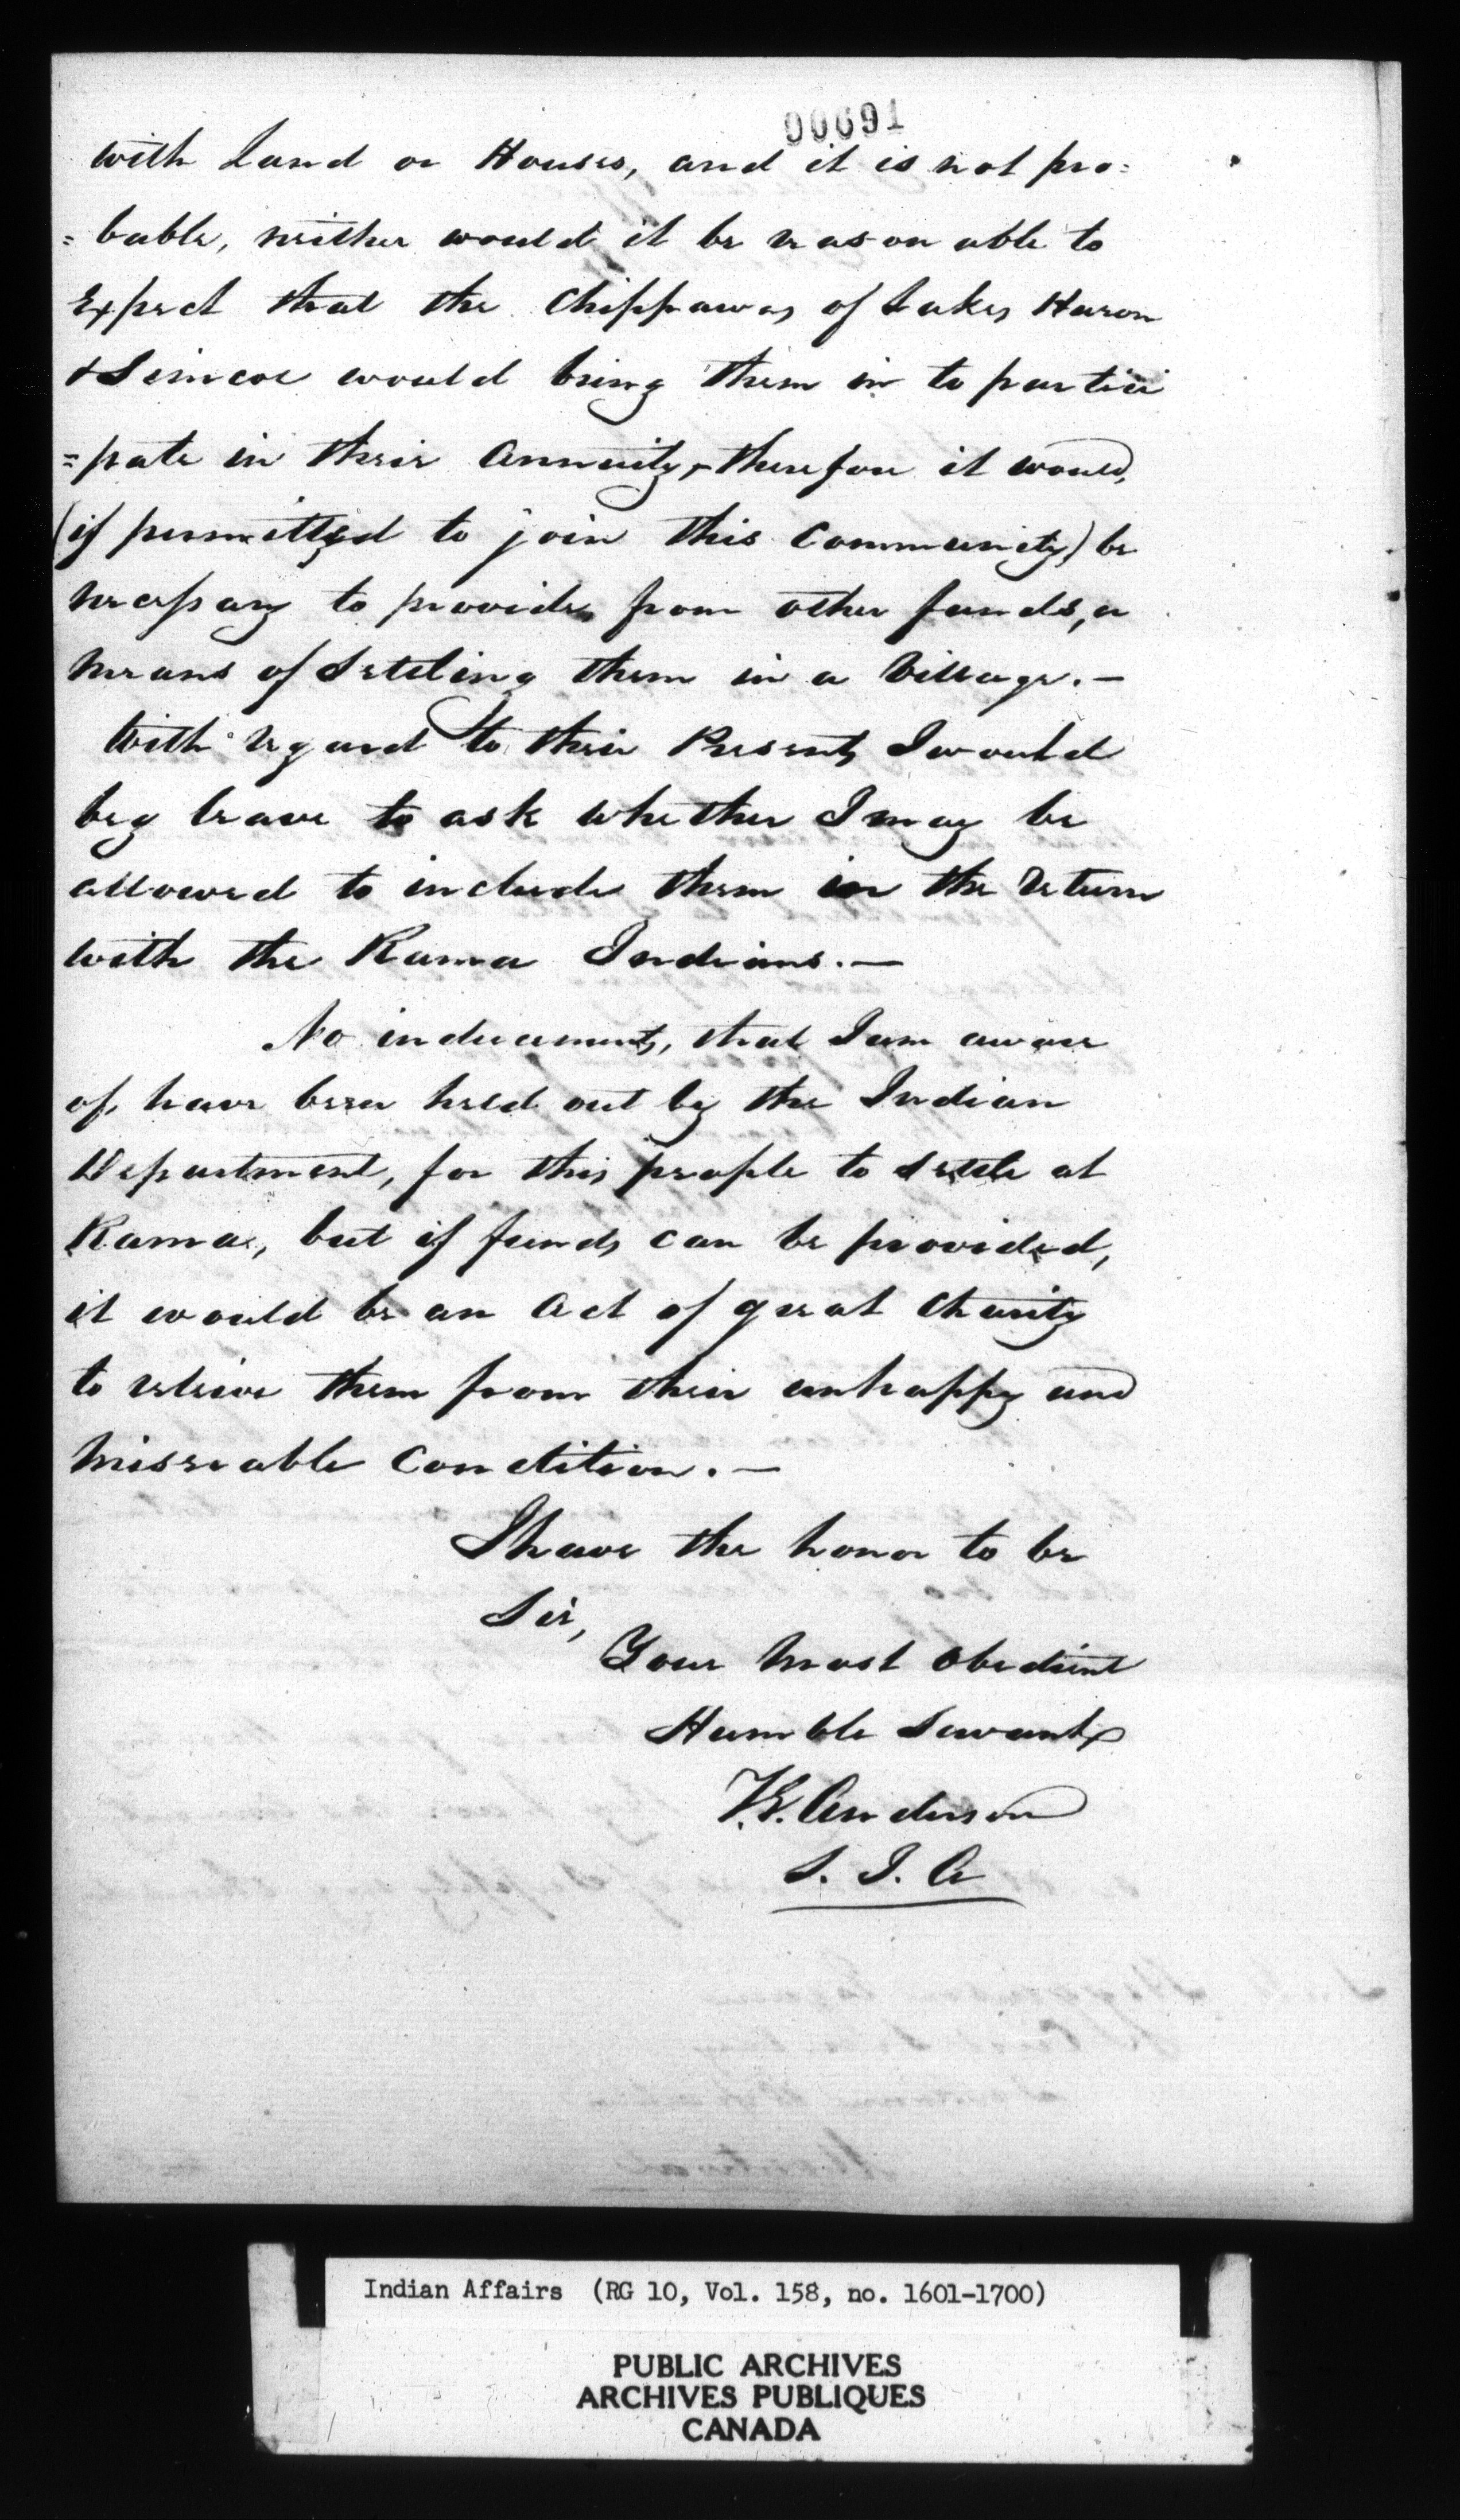 00691
with Land or Houses, and it is not pro=
=bable, neither would it be reasonable to
Expect that the Chippawas of Lakes Huron
& Simcoe would bring them in to partici
=pate in their Annuity, therefore it would,
(if permitted to join this Community) be
necessary to provide from other funds, a
means of Settling them in a Village. —
With regard to their Presents I would
beg leave to ask whether I may be
allowed to include them in the return
with the Rama Indians. —
No inducements, that I am aware
of, have been held out by the Indian
Department, for this people to settle at
Rama, but if funds can be provided,
it would be an Act of great Charity
to releive them from their unhappy and
Misserable Condition. —
I have the honor to be
Sir,
Your Most Obedient
Humble Servant
T.G. Anderson
S. I. A
Indian Affairs (RG 10, Vol. 158, no. 1601-1700)
PUBLIC ARCHIVES
ARCHIVES PUBLIQUES
CANADA